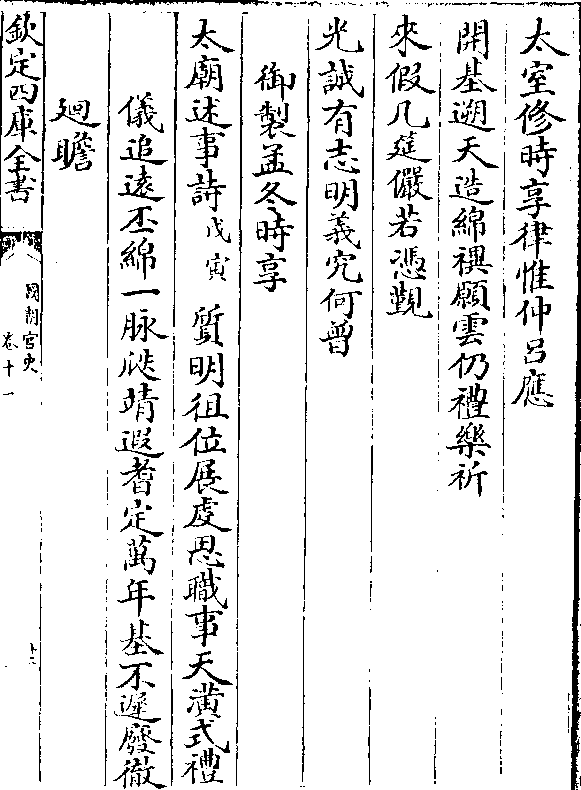 太室修時享律惟仲呂應
開基遡天造綿禩願雲仍禮樂祈
來假几筵儼若憑覲
光誠有志明義究何曾
御製孟冬時享
太廟述事詩戊寅 質明徂位展虔思職事天潢式禮
儀追遠丕綿一脉脁靖遐耆定萬年基不遲廢徹
廻瞻
欽定四庫全書
國朝宮史
卷十一